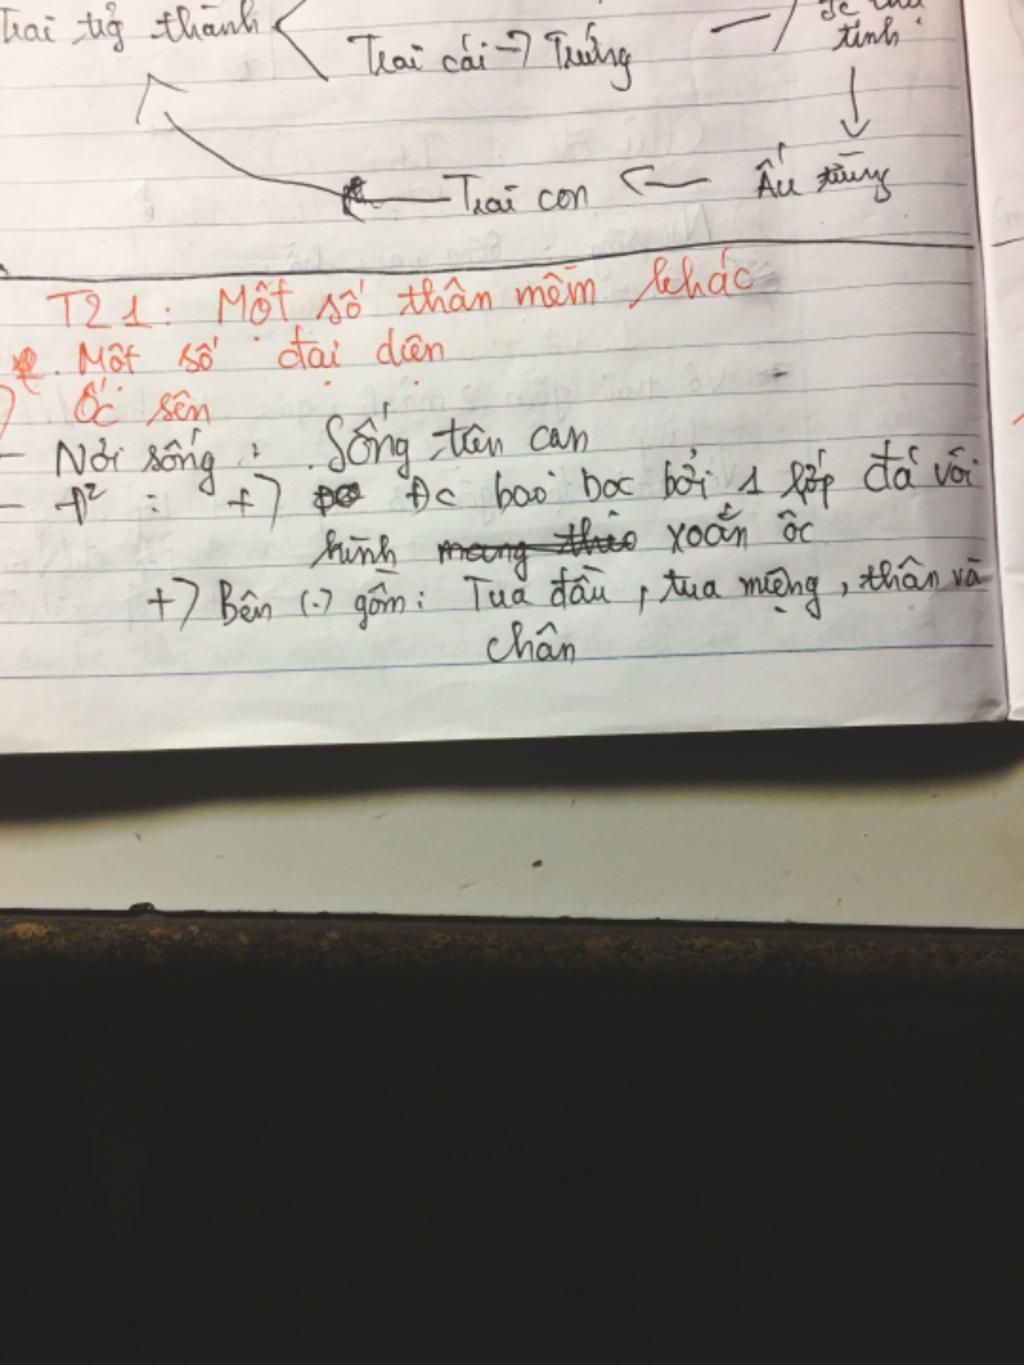 Trai trg thành
Trai cái → Trứng
tinh
Trai con ← Ấu trùng
T21: Một số thân mềm khác
. Một số đại diện
Ốc sên
- Nơi sống : Sống trên cạn
- Đ² : +) Đc bao bọc bởi 1 lớp đá vôi
hình xoắn ốc
+) Bên (.) gồm: Tua đầu, tua miệng, thân và
chân